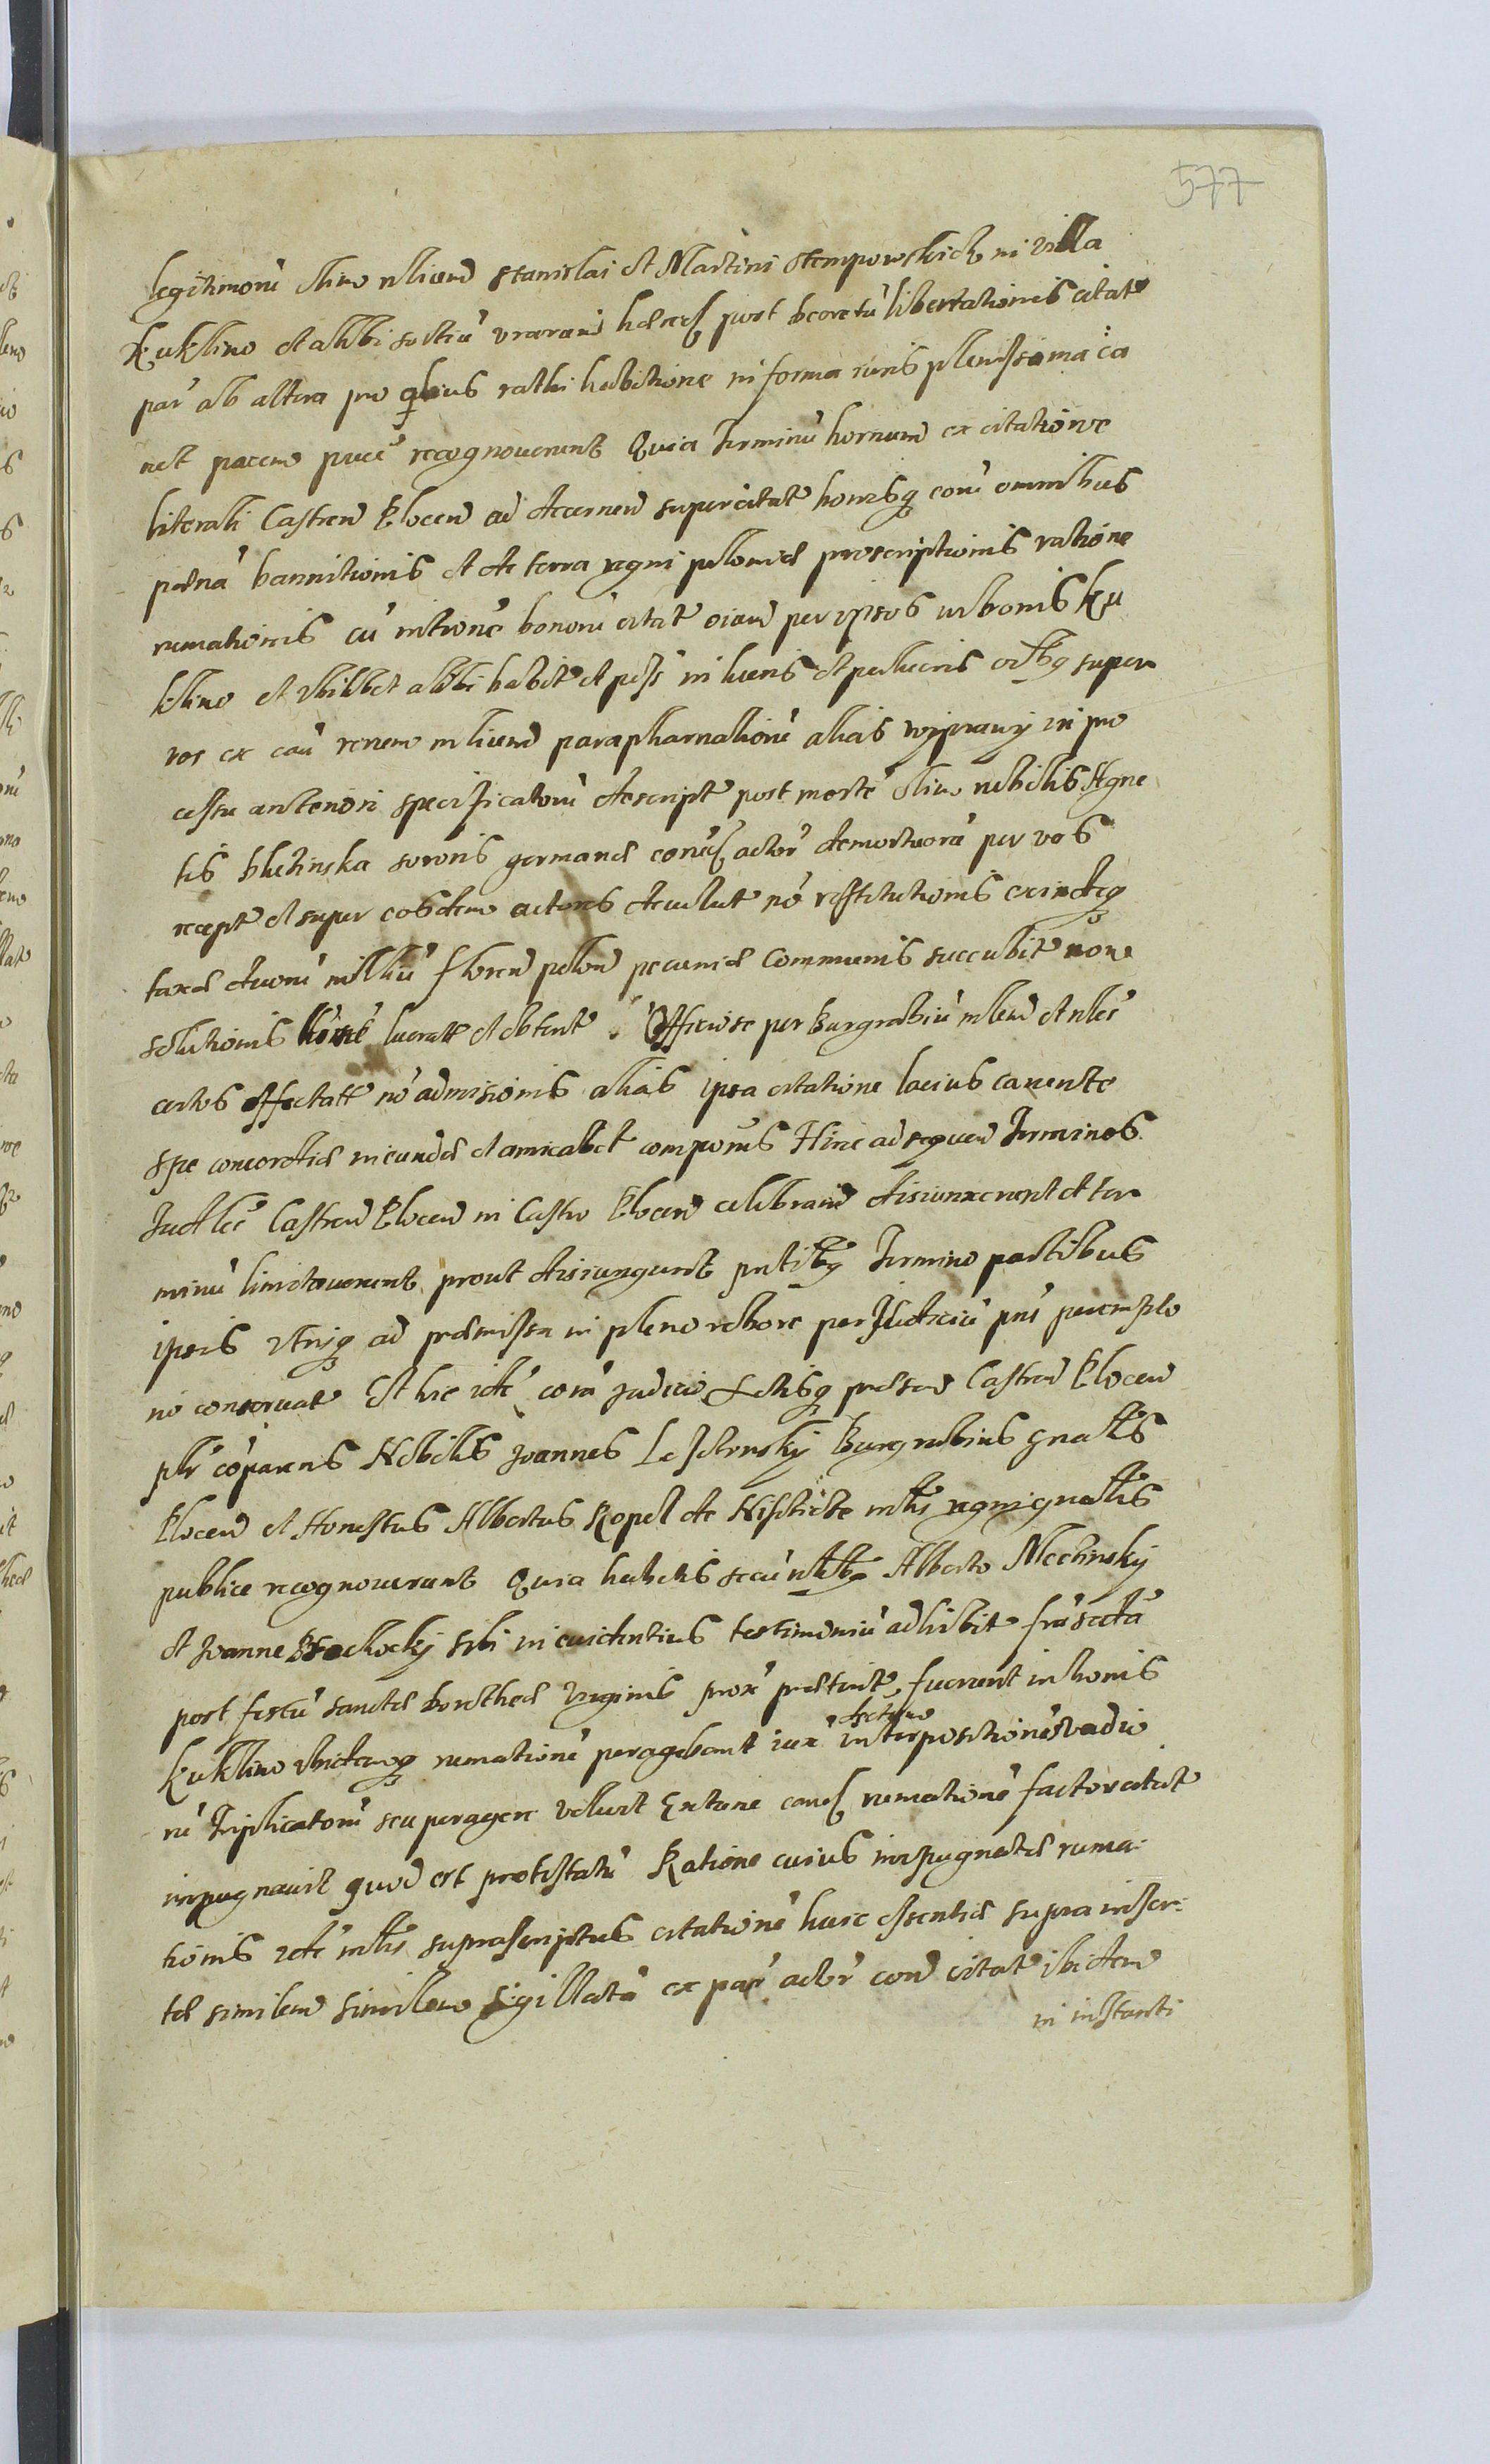 577
legitimorū olim nliūm Stanislai et Martini Stempowskich in villa
Kuklino et alibi sortiū vrarum haered post decretū libertationis citat
par ab altera pro quibus rathi habitione in forma iuris plenissima ca
uet pacem puce recognouerunt Quia Terminū hornum ex citatione
literali Castren Plocen ad decernen super citat bonisq eorū omnibus
poenā bannitionis et de terra regni poloniae proscriptionis ratione
rumationis cū intione bonorū citat oium per ipsos in bonis Ku
klino et vbilibet alibi habit et poss in hueris et pecueris oibq super
vos ex cau rerum mlium parapharnaliorū alias wyprawy in pro
cessu anteriori specificatorū descript post mortē olim nobilis Agne
tis Chechinska sororis germanae coniue actor demortuorā per vos
recept et super eosdem actores deuolut nō restitutionis exindeq
taxae duorū milliū floren polon pecuniae communis succubit non
solutionis lucrat et obtent Officiose per Burgrabiū nlem et nles
certos affectatt nō admisionis alias ipsa citatione lacius canente
spe concordiae ineundae et amicabet componis Hinc ad sequen Terminos
Judles Castren Plocen in Castro Plocen celebrand disiunxerunt et ter
minū limitauerunt prout disiungunt pntibq Termino partibus
ipsis vtrisq ad praemissa in pleno robore per Judiciū pns peremplo
nō conseruat Et hic idē corā Judicio Actisq praesen Castren Plocen
plr cōparens Nobilis Joannes Burgrabius gnalis
Plocen et Honestus Albertus Kopel de mlis regni gnalis
publice recognouerunt Quia habitis secū nlibq Alberto Mochinsky
et Joanne sibi in euidentius testimoniū adhibit fra sextā
post festū sanctae Dorotheae Virginis prox praeterit fuerunt in bonis
Kuklino vbidemq rumationē peragebant iux decreto interpositionē vadio
rū Triplicatorū seu peragere volunt Extunc conue rumationē factor citat
inpugnauit quod est protestatū Ratione cuius inpugnatae ruma-
tionis idē mlis suprascriptus citationē huic essentiae supra inser-
tae similem similem sigillatā ex par actor coram citat ibidem
in instanti